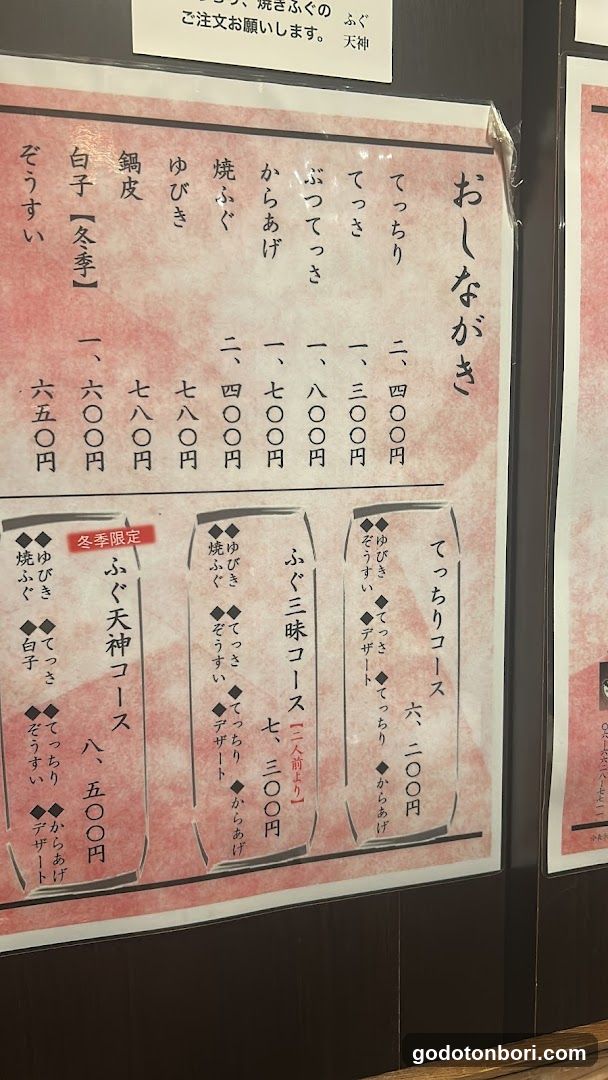 焼きふぐの
ご注文お願いします。
ふぐ
天神
おしながき
てっちり 二、四〇〇円
てっさ 一、三〇〇円
ぶつてっさ 一、八〇〇円
からあげ 一、七〇〇円
焼ふぐ 二、四〇〇円
ゆびき 七八〇円
鍋皮 七八〇円
白子【冬季】 一、六〇〇円
ぞうすい 六五〇円
てっちりコース 六、二〇〇円
◆ゆびき ◆てっさ ◆てっちり ◆からあげ
◆ぞうすい ◆デザート
ふぐ三昧コース【二人前より】 七、三〇〇円
◆ゆびき ◆てっさ ◆てっちり ◆からあげ
◆焼ふぐ ◆ぞうすい ◆デザート
冬季限定
ふぐ天神コース 八、五〇〇円
◆ゆびき ◆てっさ ◆てっちり ◆からあげ
◆焼ふぐ ◆白子 ◆ぞうすい ◆デザート
godotonbori.com